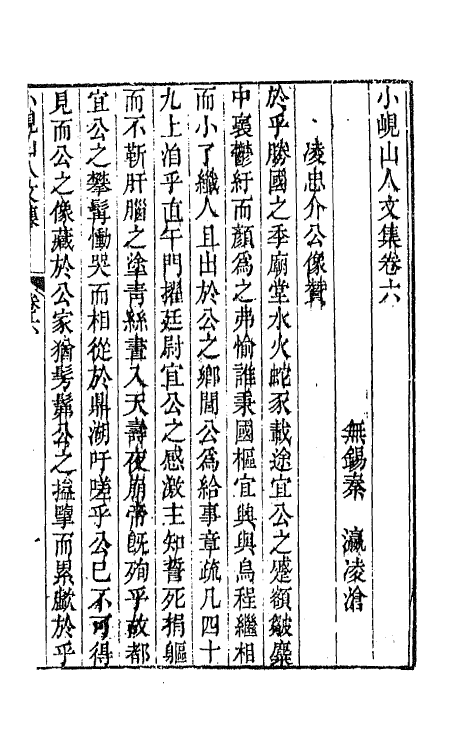 小峴山人文集卷六
無錫秦　瀛凌滄
凌忠介公像贊
於乎勝國之季廟堂水火蛇豕載途宜公之蹙額皺麋
中裏鬱紆而顏為之弗愉誰秉國樞宜興與烏程繼相
而小了孅人且出於公之鄉閭公為給事章疏凡四十
九上洎乎直午門擢廷尉宜公之感激主知誓死捐軀
而不靳肝腦之塗青絲晝入天壽夜崩帝既殉乎故都
宜公之攀髯慟哭而相從於鼎湖吁嗟乎公已不可得
見而公之像藏於公家猶髣髴公之搤擥而累歔於乎
小峴山人文集
卷六
一